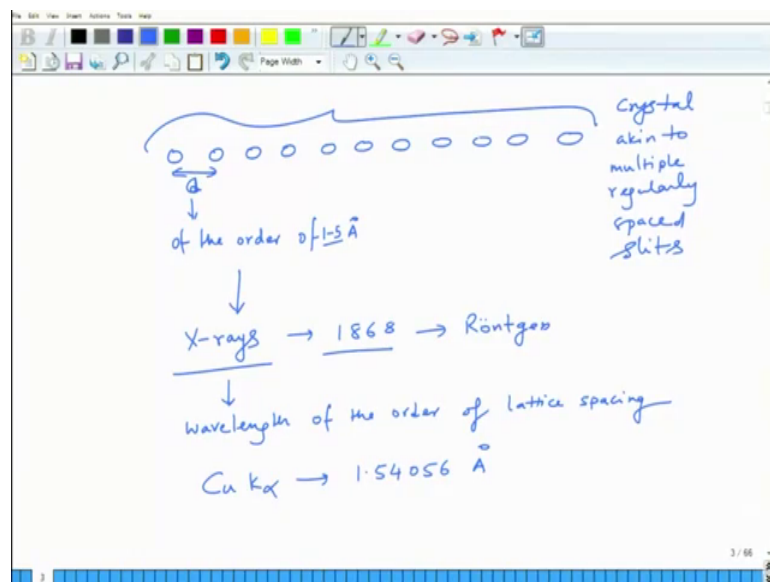 File Edit View Insert Actions Tools Help
B I
Page Width
crystal
akin to
multiple
regularly
spaced
slits
d
of the order of 1-5 Å
X-rays → 1868 → Röntgen
wavelength of the order of lattice spacing
Cu kα → 1.54056 Å
3 / 66
3